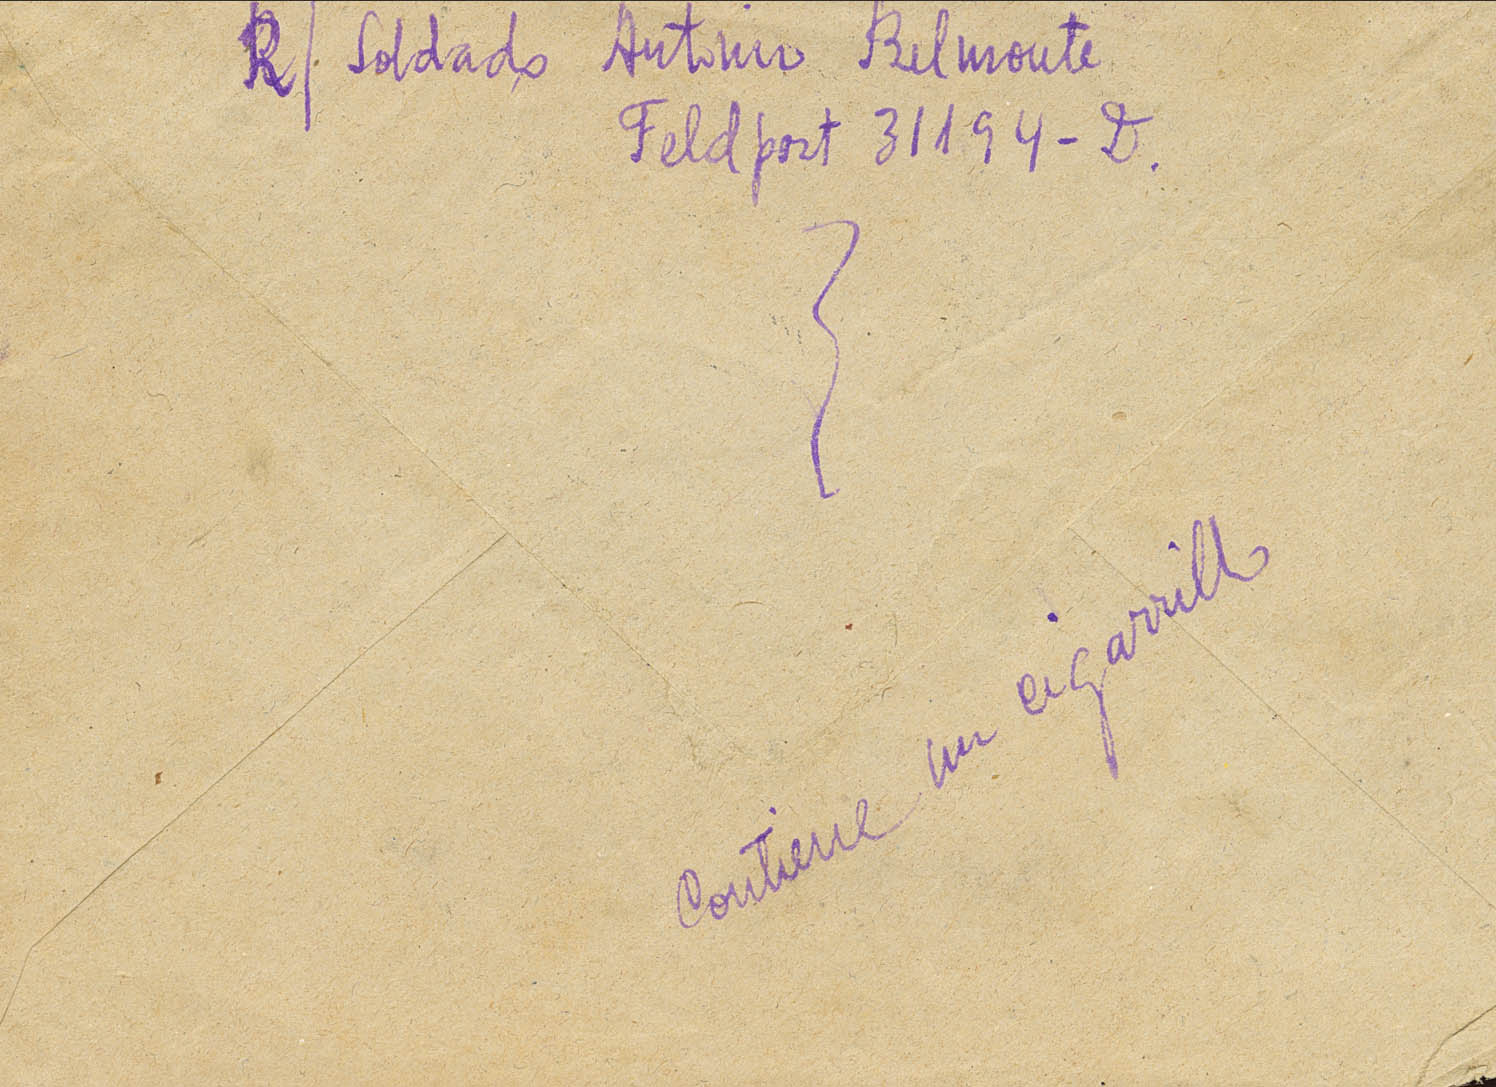 R/ Soldado Antonio Belmonte
Feldpost 31194-D.
Contiene un cigarrillo